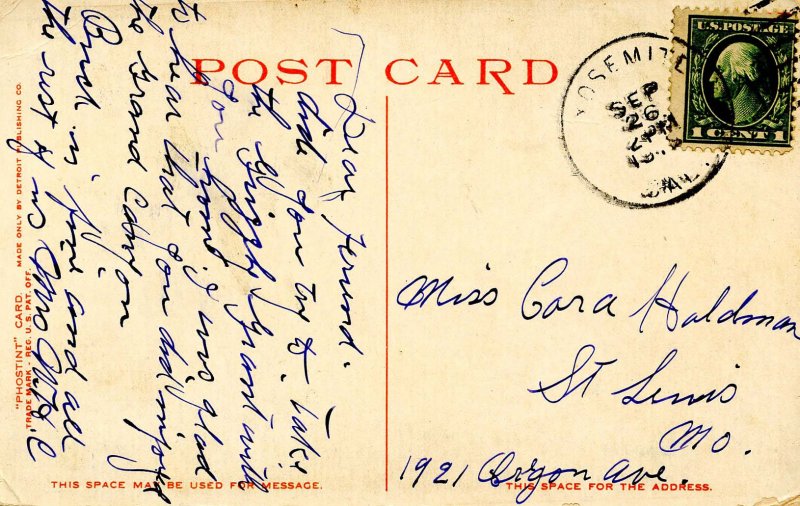 POST CARD
YOSEMITE
SEP
26
PM
CAL.
U.S. POSTAGE
1 CENT 1
Dear Friend.
did you try to take
the Grippy Grant with
you home I was glad
to hear that you did enjoyed
the Grand Canyon
Bush is fine and all
the rest of us
Miss Cora Haldman
St Louis
Mo.
1921 Oregon Ave.
"PHOSTINT" CARD. MADE ONLY BY DETROIT PUBLISHING CO.
TRADE MARK - REG. U. S. PAT. OFF.
THIS SPACE MAY BE USED FOR MESSAGE.
THIS SPACE FOR THE ADDRESS.